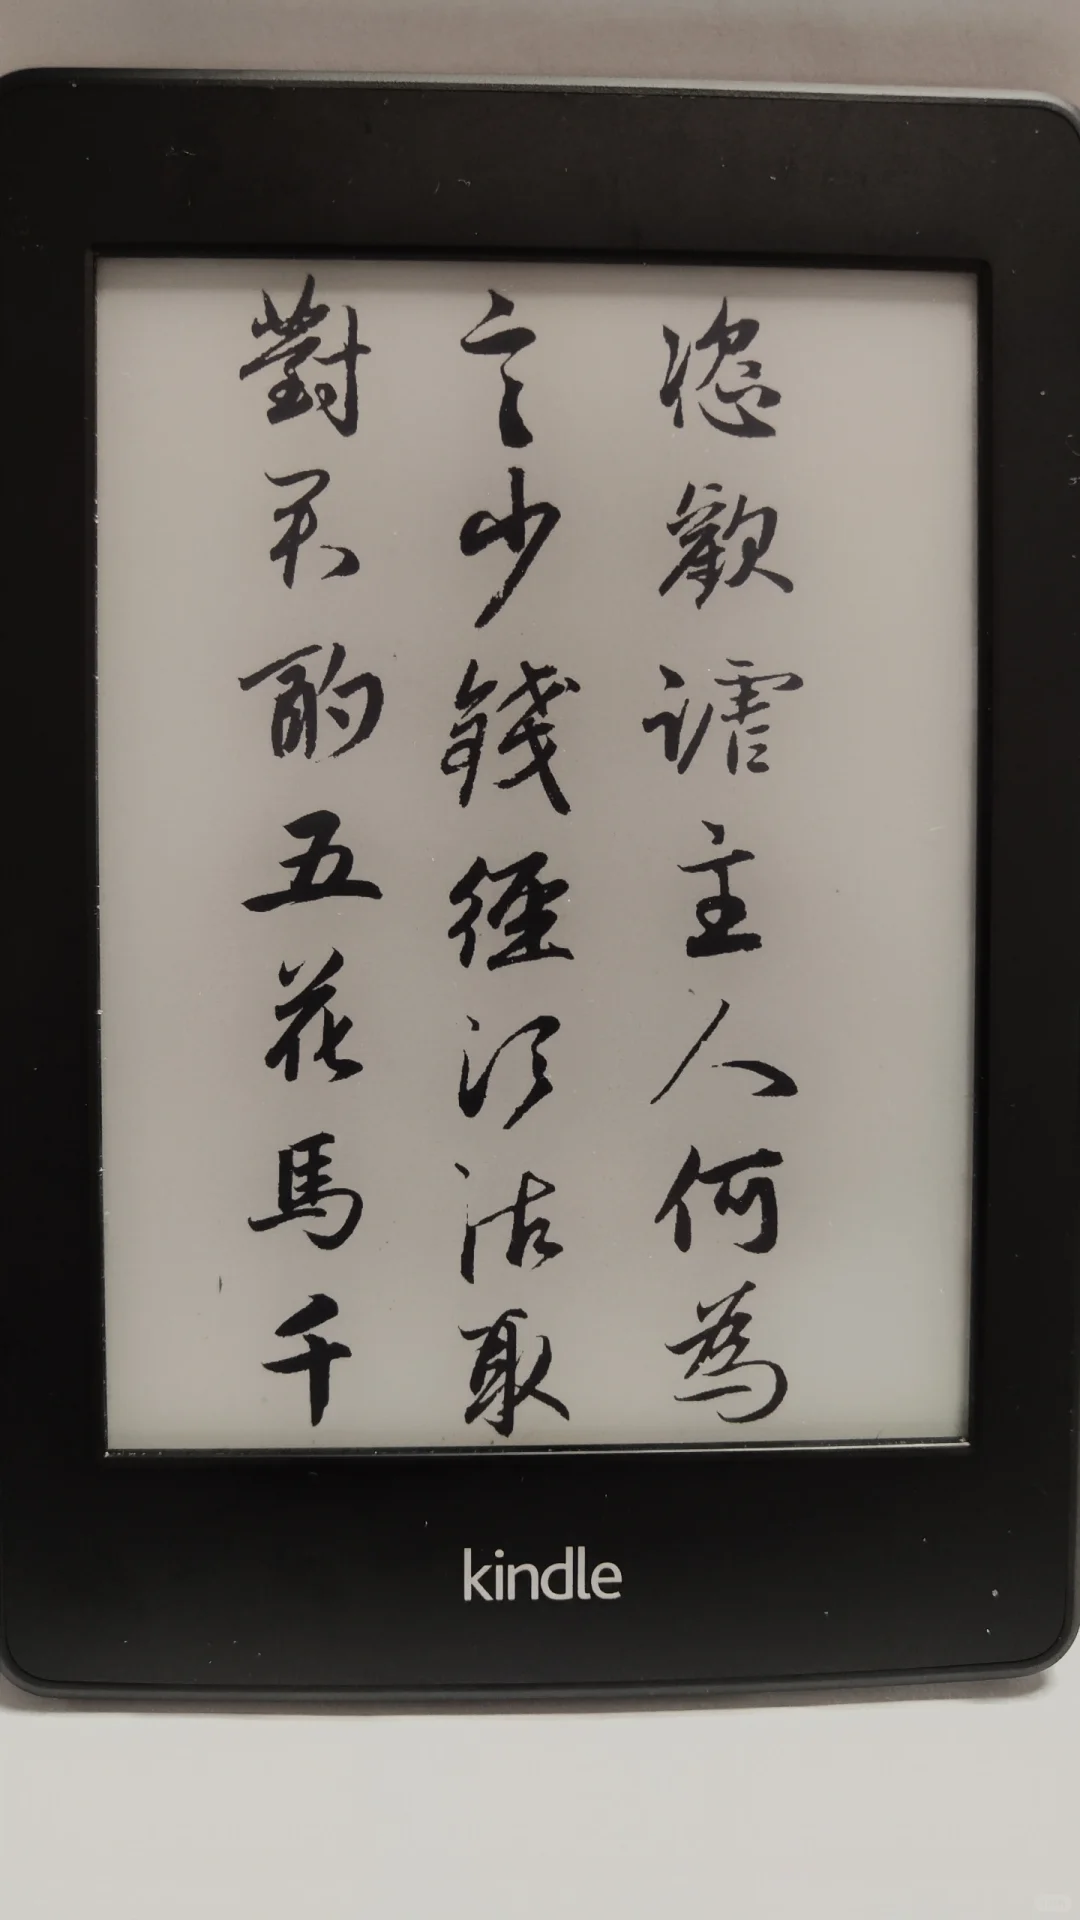 恣歡謔主人何為
言少錢徑須沽取
對君酌五花馬千
kindle